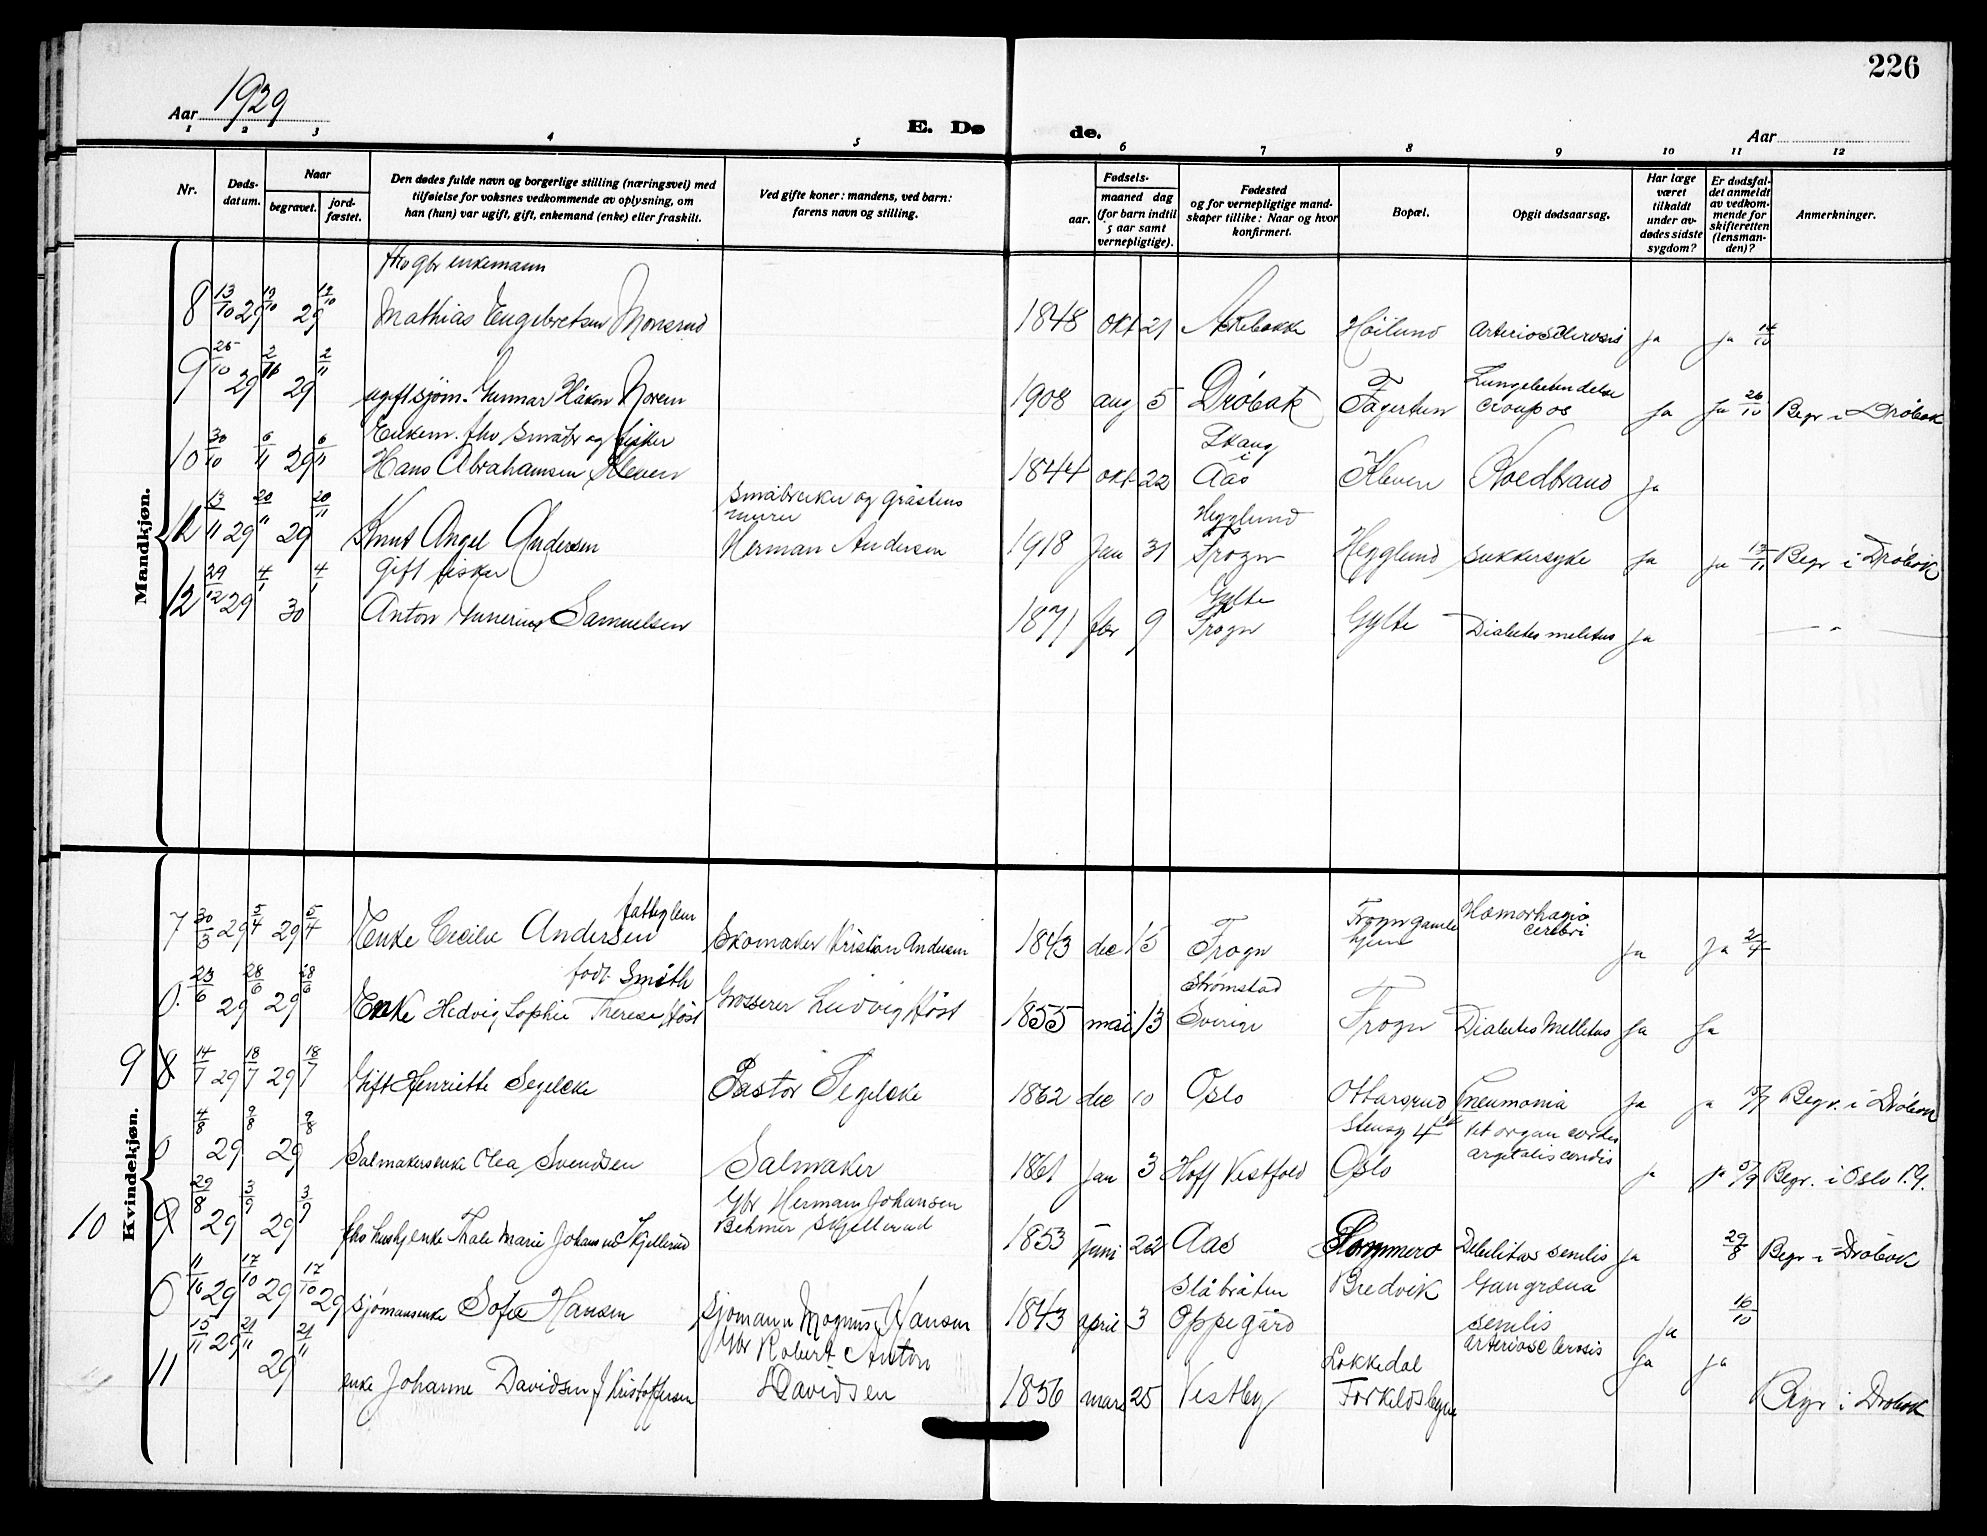 226
Aar 1929
E. Dø de.
Aar
1 2 3 4 5 6 7 8 9 10 11 12
Nr.
Døds-
datum.
Naar
begravet.
jord-
fæstet.
Den dødes fulde navn og borgerlige stilling (næringsvei) med
tilføielse for voksnes vedkommende av oplysning, om
han (hun) var ugift, gift, enkemand (enke) eller fraskilt.
Ved gifte koner: mandens, ved barn:
farens navn og stilling.
Fødsels-
aar.
maaned dag
(for barn indtil
5 aar samt
vernepligtige).
Fødested
og for vernepligtige mand-
skaper tillike: Naar og hvor
konfirmert.
Bopæl.
Opgit dødsaarsag.
Har læge
været
tilkaldt
under av-
dødes sidste
sygdom?
Er dødsfal-
det anmeldt
av vedkom-
mende for
skifteretten
(lensman-
den)?
Anmerkninger.
Mandkjøn.
fho gbr enkemann
8 13/10 29 19/10 29 19/10 Mathias Engebretsen Monsrud 1848 okt 21 Høilund Arteriosclerosis ja ja 14/10
9 25/10 29 2/11 29 2/11 ugift sjøm. Gunnar Håkon Noren 1908 aug 5 Drøbak Fagertun Lungebetendelse
croupøs ja ja 26/10 Begr i Drøbak
Enkem. fho, småbr og fisker
10 30/10 6/11 29 6/11 Hans Abrahamsen Kleven 1844 okt 22 Skaug
i
Aas Kleven Koldbrand ja
småbruker og gråstens
murer
12 13/11 29 20/11 29 20/11 Knut Angel Andersen Herman Andersen 1918 jan 31 Hegglund
Frogn Hegglund sukkersyke ja ja 15/11 Begr i Drøbak
gift fisker
12 29/12 29 4/1 30 4/1 Anton Gunerius Samuelsen 1871 febr 9 Gylte
Frogn Gylte Diabetes melitus ja — " —
Kvindekjøn.
fattiglem
7 30/3 29 5/4 29 5/4 Enke Cecilie Andersen Skomaker Kristian Andersen 1843 dec 15 Frogn Frogn gamle
hjem Hæmorhagia
cerebri ja ja 2/4
født Smith
0. 23/6 29 28/6 29 28/6 Enke Hedvig Sophie Therese Høst Grosserer Ludvig Høst 1855 mai 13 Strømstad
Sverige Frogn Diabetes Mellitus ja ja
9 8 14/7 29 18/7 29 18/7 Gift Henriette Segelcke Pastor Segelcke 1862 dec 10 Oslo Ottarsrud Pneumonia ja ja 15/7 Begr. i Drøbak
0 4/8 29 9/8 29 9/8 Salmakersenke Olea Svendsen Salmaker 1861 jan 3 Hoff Vestfold Stensg 4
Oslo Vit organ cordis
ja ja 5/9 Begr. i Oslo V.G.
10 9 29/8 29 3/9 29 3/9 fho husbj enke Thale Marie Johansen Skjellerud Gbr Herman Johansen
Behmer Skjellerud 1853 juni 22 Aas Sommero Debilitas senilis ja 29/8 Begr i Drøbak
0 11/10 29 17/10 29 17/10 29 sjømansenke Sofie Hansen sjømann Magnus Hansen 1843 april 3 Slåbråten
Oppegård Bredvik Gangræna
senilis ja 16/10
11 15/11 29 21/11 29 21/11 enke Johanne Davidsen f Kristoffersen Gbr Robert Anton
Davidsen 1856 mars 25 Vestby Lokkedal
Torkildsbyen arteriosclerosis ja ja Begr i Drøbak